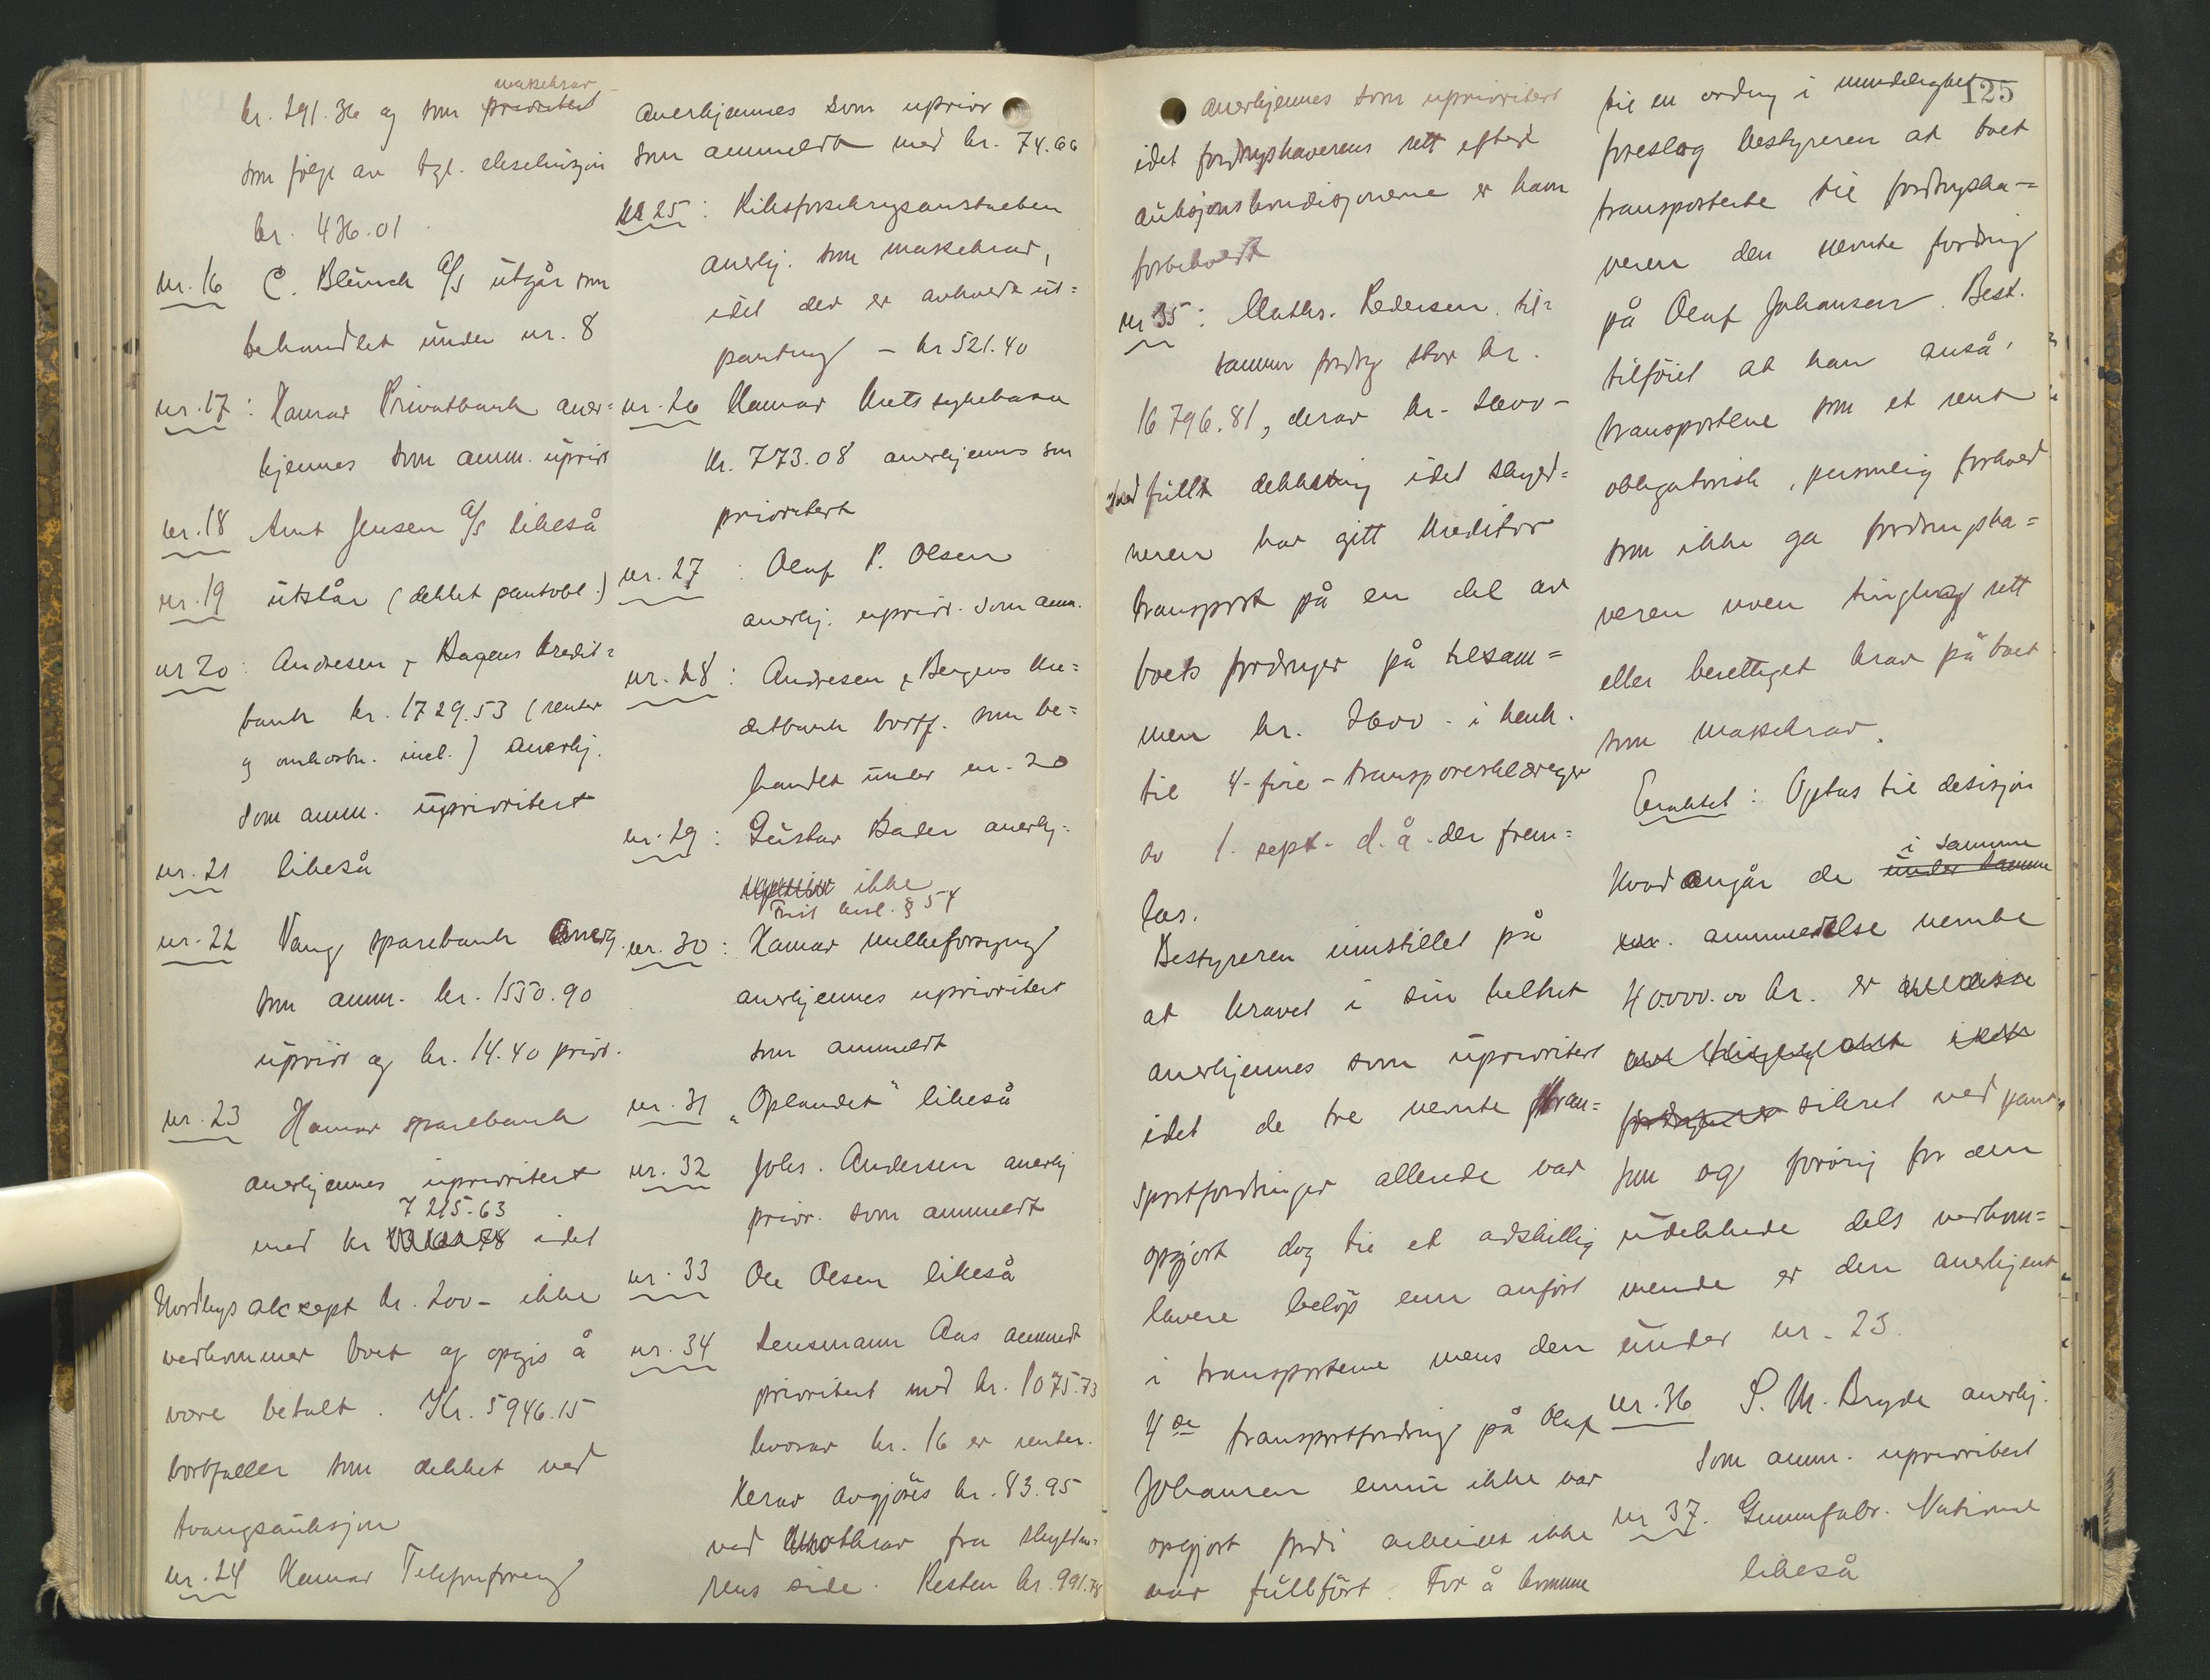 maskekrav
kr. 291.36 og som prioritert
som følge av tgl. eksekusjon
kr. 436.01
nr. 16 C. Blünch A/S utgår som
behandlet under nr. 8
nr. 17: Hamar Privatbank aner=
kjennes som anm. uprior
nr. 18 Arnt Jensen A/S likeså
nr. 19 utstår (dekket pantobl.)
nr 20: Andresen & Bergens kredit=
bank kr. 1729.53 (renter
og omkostn. incl.) anerkj.
som anm. uprioritert
nr. 21 likeså
nr. 22 Vang sparebank anerkj.
som anm. kr. 1550.90
uprior og kr. 14.40 prior.
nr. 23 Hamar sparebank
anerkjennes uprioritert
7215.63
med kr idet
Nordbys aksept kr. 200- ikke
vedkommer boet og opgis å
være betalt. Kr. 5946.15
bortfaller som dekket ved
tvangsauksjon
nr. 24 Hamar Telefonforeng
anerkjennes som uprior
som anmeldt med kr. 74.66
nr 25: Riksforsikringsanstalten
anerkj. som maskekrav,
idet der er avholdt ut=
pantning - kr 521.40
nr. 26 Hamar krets sykekasse
kr. 773.08 anerkjennes som
prioritert
nr. 27: Olaf P. Olsen
anerkj. uprior. som anm.
nr. 28: Andresen & Bergens kre=
ditbank bortf. som be=
handlet under nr. 20
nr. 29: Gustav Bader anerkj=
uprior ikke
Frist kksl. § 54
nr. 30: Hamar melkeforsyning
anerkjennes uprioritert
som anmeldt
nr. 31 "Oplandet" likeså
nr. 32 Johs. Andersen anerkj
prior. som anmeldt
nr. 33 Ole Olsen likeså
nr. 34 Lensmann Aas anmeldt
prioritert med kr. 1075.73
hvorav kr. 16 er renter.
Herav avgjøres kr. 83.95
ved motkrav fra skyldne=
rens side. Resten kr. 991.78
125
anerkjennes som uprioritert
idet fordringshaverens rett efter
auksjonskondisjonerne er ham
forbeholdt
nr 35: Maths. Pedersen til=
sammen fordrg stor kr.
16 796.81, derav kr. 2600-
med fullt dekkning idet skyld=
neren har gitt kreditor
transport på en del av
boets fordringer på tilsam=
men kr. 2600- i henh.
til 4-fire-transporterklæringer
av 1. sept. d.å. der frem=
las.
Bestyreren innstillet på
at kravet i sin helhet
anerkjennes som uprioritert
idet de tre nevnte tran=
sportfordringer allerede var
opgjort dog til et adskillig
lavere beløp enn anført
i transportene mens den
4de transportfordring på Olaf
Johansen ennu ikke var
opgjort fordi arbeidet ikke
var fullført. For å komme
til en ordng i mindelighet
foreslog bestyreren at boet
transporterte til fordringsha=
veren den nevnte fordring
på Olaf Johansen. Best.
tilføiet at han anså
transportene som et rent
obligatorisk, personlig forhold
som ikke ga fordringsha=
veren noen tinglig rett
eller berettiget krav på boet
som maskekrav.
Eraktet: Optas til desisjon
i samme
Hvad angår de under samme
nr. anmeldelse nevnte
40000.00 kr. er
fordringer sikret ved pant,
som og forøvrig for den
udekkede dels vedkom=
mende er den anerkjent
under nr. 23.
nr. 36 S. M. Bryde anerkj.
som anm. uprioritert
nr 37. Gummifabr. National
likeså